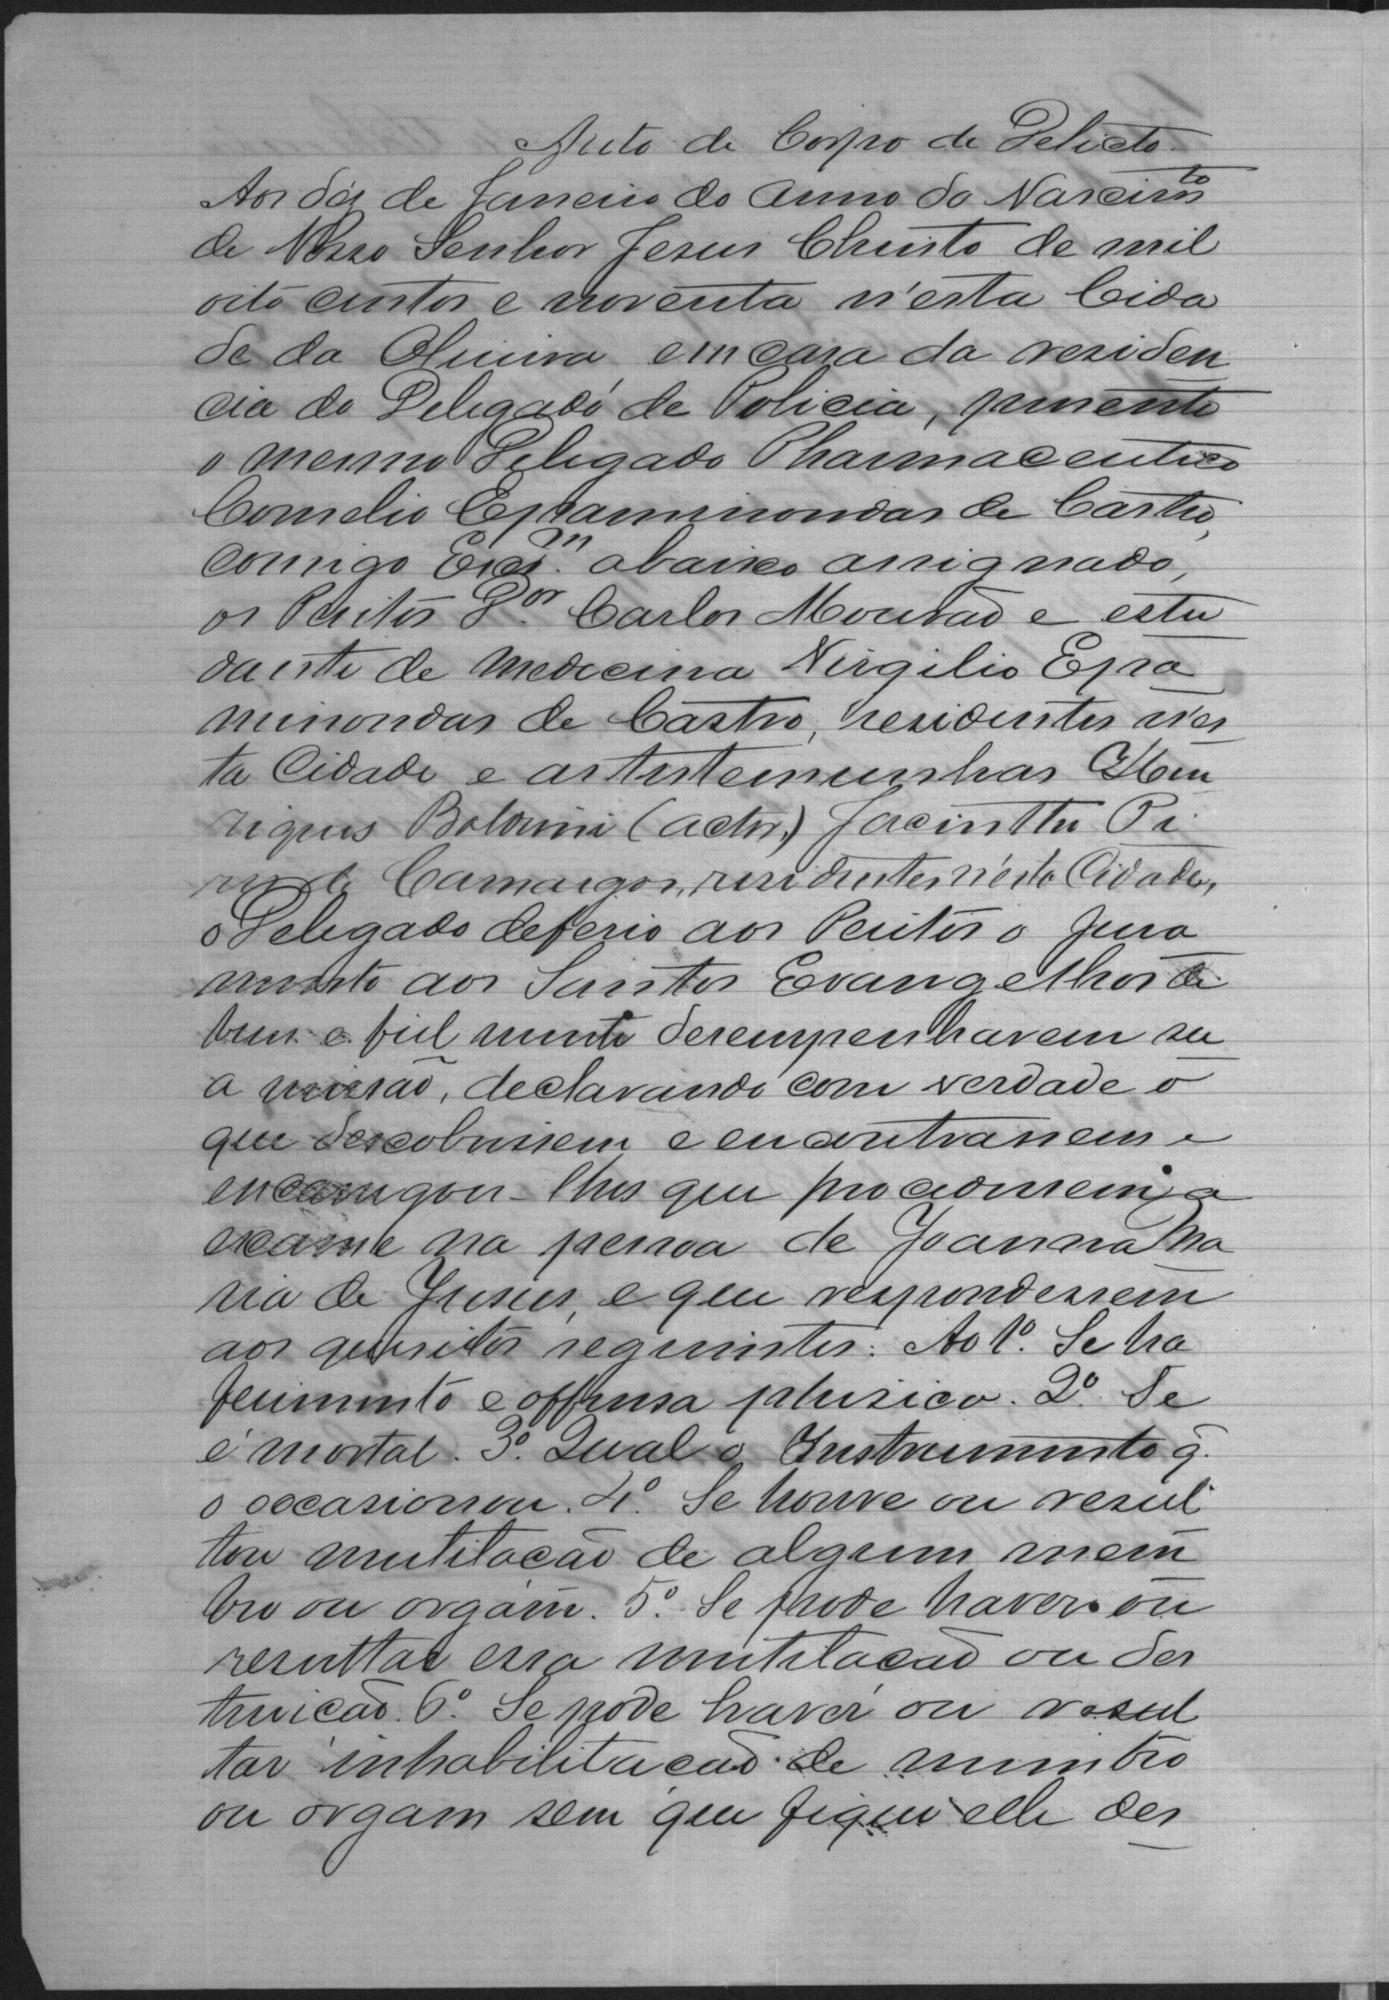 Auto de Corpo de Delicto.
Aos déz de Janeiro do anno do Nascim.to
de Nosso Senhor Jesus Christo de mil
oito centos e noventa n'esta Cida
de da Oliveira em casa da residen
cia do Delegado de Policia, presente
o mesmo Delegado Pharmaceutico
Cornelio Epaminondas de Castro,
comigo Escr.m abaixo assignado,
os Peritos D.or Carlos Mourão e estu
dante de medicina Virgilio Epa
minondas de Castro, residentes n'es
ta Cidade e as testemunhas Hen
riques Boldrini (actor) Jacintho Pi
res de Camargos, residentes n'esta Cidade,
o Delegado deferio aos Peritos o jura
mento aos Santos Evangelhos de
bem e fiel mente desempenharem su
a missão, declarando com verdade o
que descobrissem e encontrassem e
encarregou-lhes que procedessem a
exame na pessoa de Joanna Ma
ria de Jesus, e que respondessem
aos quesitos seguintes: Ao 1º. Se ha
ferimento e offensa phisica. 2º. Se
é mortal. 3º. Qual o Instrumento q̃.
o occasionou. 4º. Se houve ou resul
tou mutilacão de algum mem
bro ou orgam. 5º. Se pode haver ou
resultar essa mutilacão ou des
truicão. 6º. Se pode haver ou resul
tar inhabilitacão de membro
ou orgam sem que fique elle des